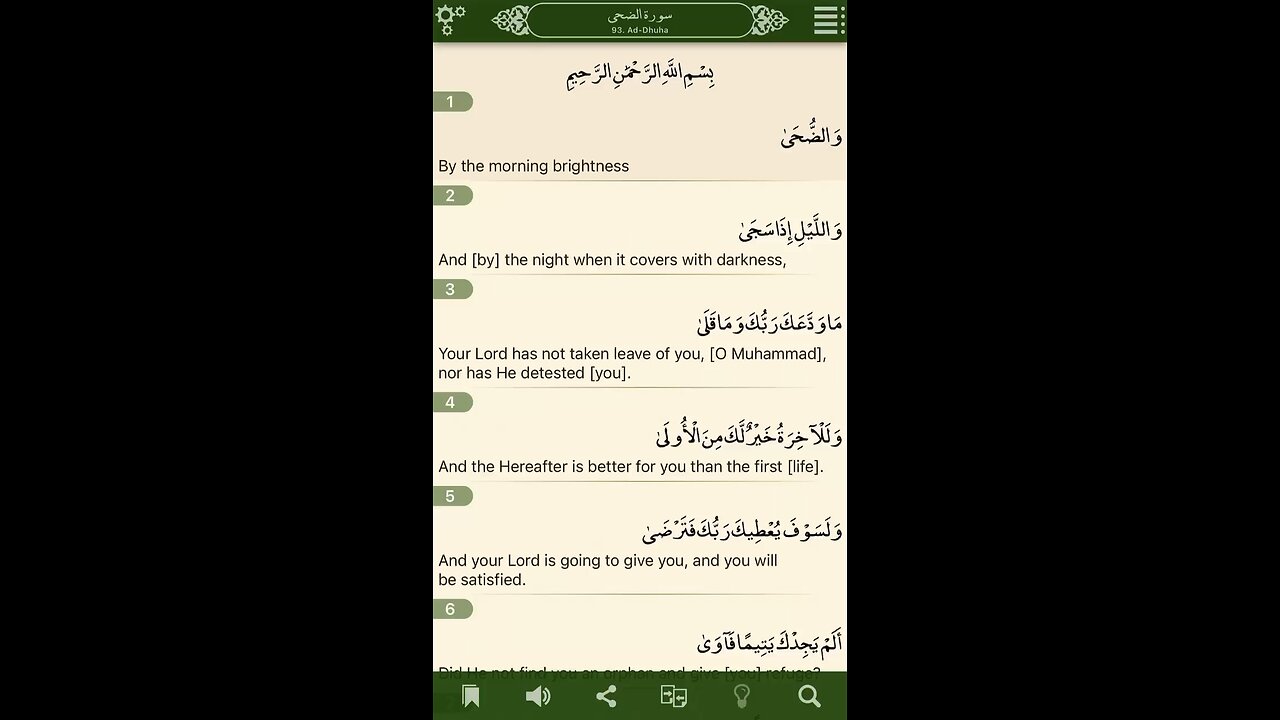 سورة الضحى
93. Ad-Dhuha
بِسْمِ اللَّهِ الرَّحْمَٰنِ الرَّحِيمِ
1
وَالضُّحَىٰ
By the morning brightness
2
وَاللَّيْلِ إِذَا سَجَىٰ
And [by] the night when it covers with darkness,
3
مَا وَدَّعَكَ رَبُّكَ وَمَا قَلَىٰ
Your Lord has not taken leave of you, [O Muhammad],
nor has He detested [you].
4
وَلَلْآخِرَةُ خَيْرٌ لَّكَ مِنَ الْأُولَىٰ
And the Hereafter is better for you than the first [life].
5
وَلَسَوْفَ يُعْطِيكَ رَبُّكَ فَتَرْضَىٰ
And your Lord is going to give you, and you will
be satisfied.
6
أَلَمْ يَجِدْكَ يَتِيمًا فَآوَىٰ
Did He not find you an orphan and give [you] refuge?